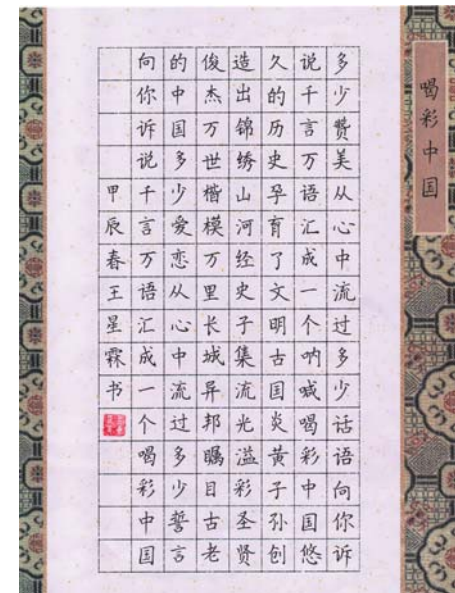 喝彩中国
多少赞美从心中流过多少话语向你诉
说千言万语汇成一个呐喊喝彩中国悠
久的历史孕育了文明古国炎黄子孙创
造出锦绣山河经史子集流光溢彩圣贤
俊杰万世楷模万里长城异邦瞩目古老
的中国多少爱恋从心中流过多少誓言
向你诉说千言万语汇成一个喝彩中国
甲辰春王星霖书